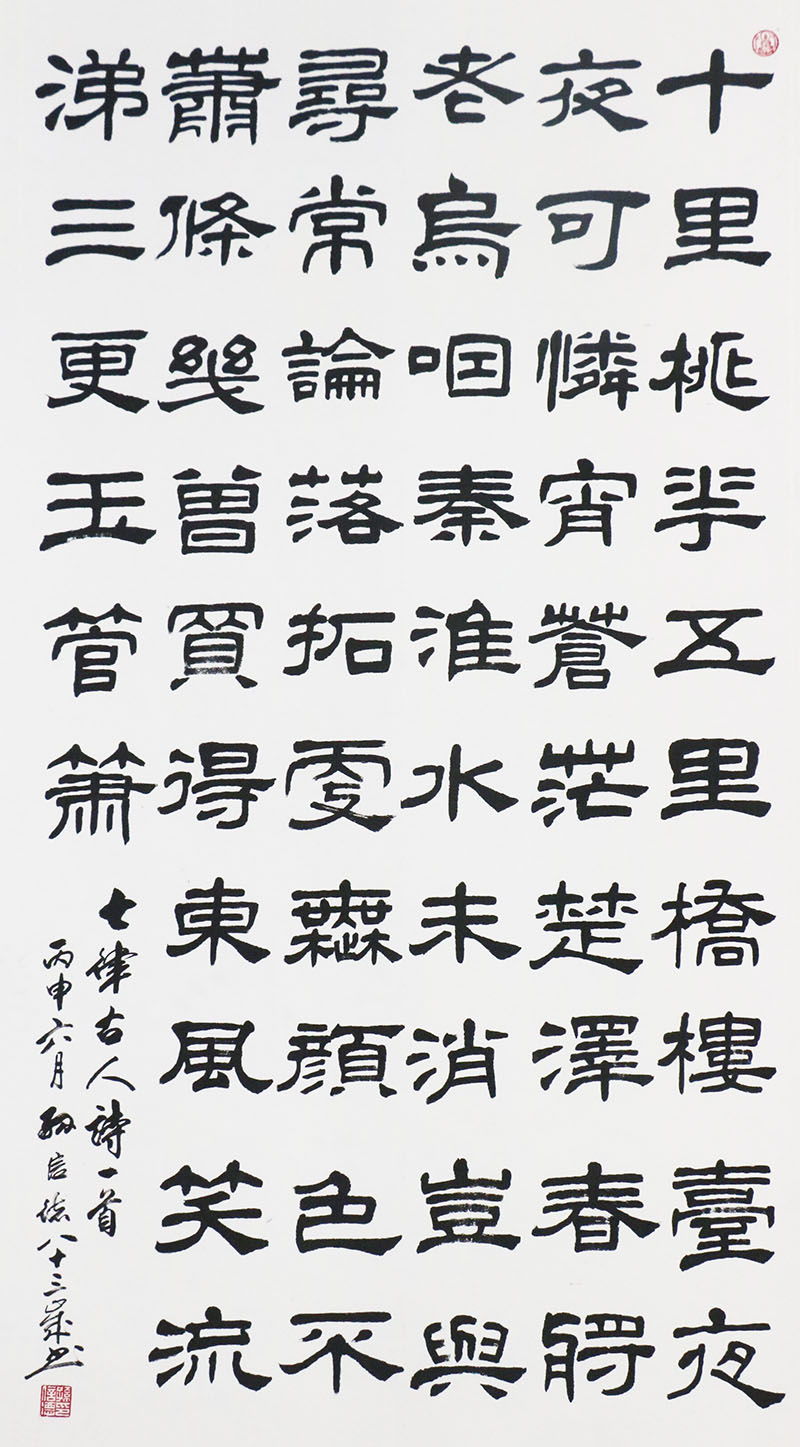 十里桃花五里橋樓臺夜
夜可憐宵蒼茫楚澤春將
老烏咽秦淮水未消豈與
尋常論落拓處無顏色不
蕭條幾曾買得東風笑流
涕三更玉管簫
七律古人詩一首
丙申六月孫信德八十三歲書